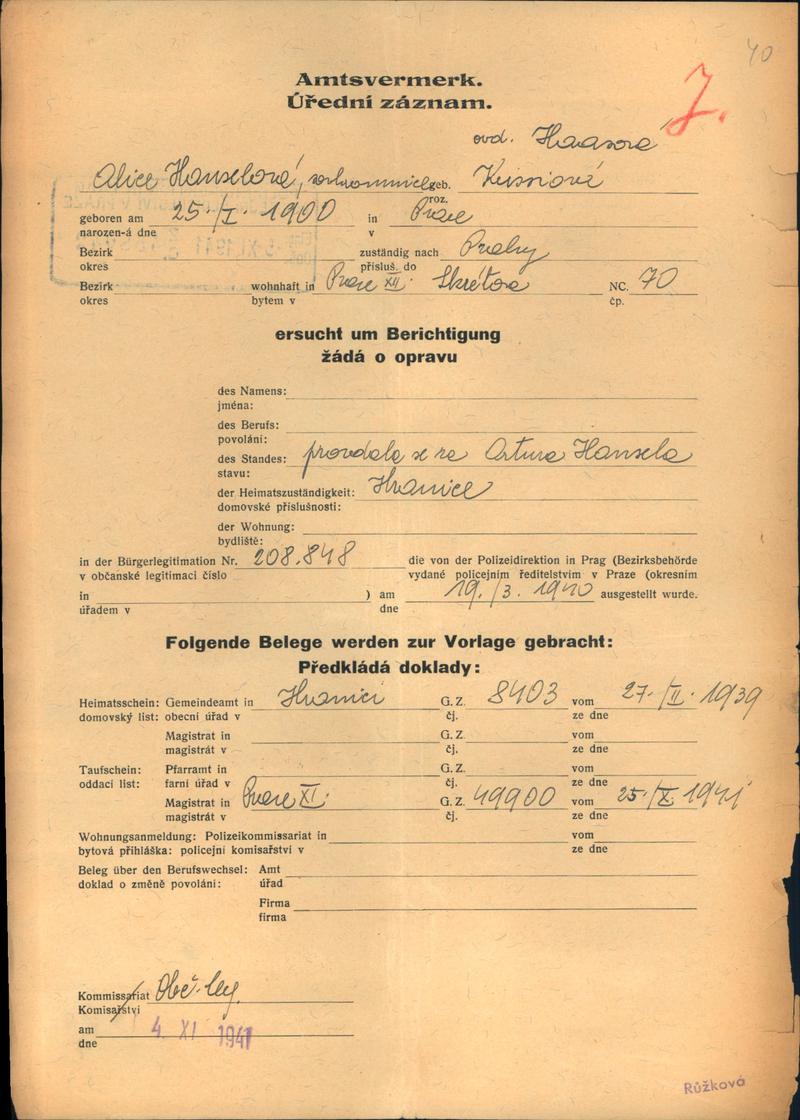 40
Amtsvermerk.
Úřední záznam.
J.
ovd. Haasová
Alice Hanselová, geb. Kussiová
roz.
geboren am 25./I. 1900 in Praze
narozen-á dne v
Bezirk zuständig nach Prahy
okres přísluš. do
Bezirk wohnhaft in Praze XII. Skrétova NC. 70
okres bytem v čp.
ersucht um Berichtigung
žádá o opravu
des Namens:
jména:
des Berufs:
povolání:
des Standes: provdala se za Artura Hansela
stavu:
der Heimatszuständigkeit: Hranice
domovské příslušnosti:
der Wohnung:
bydliště:
in der Bürgerlegitimation Nr. 208.848 die von der Polizeidirektion in Prag (Bezirksbehörde
v občanské legitimaci číslo vydané policejním ředitelstvím v Praze (okresním
in ) am 19./3. 1940 ausgestellt wurde.
úřadem v dne
Folgende Belege werden zur Vorlage gebracht:
Předkládá doklady:
Heimatsschein: Gemeindeamt in Hranici G. Z. 8403 vom 27./II. 1939
domovský list: obecní úřad v čj. ze dne
Magistrat in G. Z. vom
magistrát v čj. ze dne
Taufschein: Pfarramt in G. Z. vom
oddací list: farní úřad v čj. ze dne
Magistrat in Praze XI. G. Z. 49900 vom 25./X. 1941
magistrát v čj. ze dne
Wohnungsanmeldung: Polizeikommissariat in vom
bytová přihláška: policejní komisařství v ze dne
Beleg über den Berufswechsel: Amt
doklad o změně povolání: úřad
Firma
firma
Kommissariat Obč. leg.
Komisařství
am 4. XI 1941
dne
Růžková